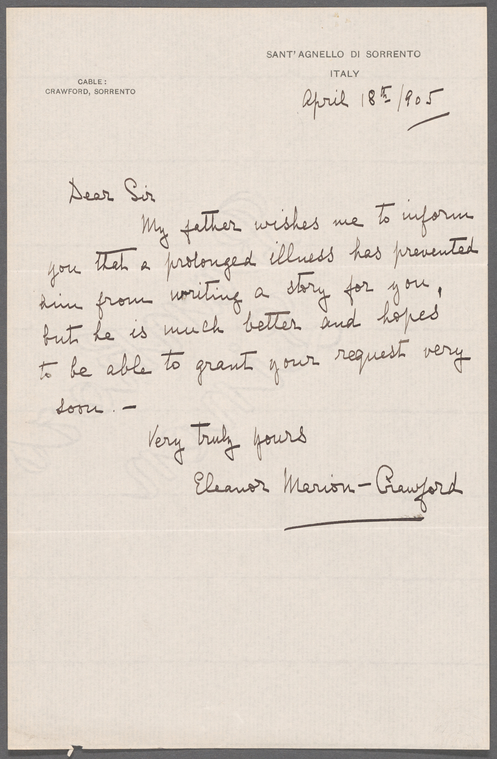 SANT' AGNELLO DI SORRENTO
ITALY
CABLE:
CRAWFORD, SORRENTO
April 18th /905
Dear Sir
My father wishes me to inform
you that a prolonged illness has prevented
him from writing a story for you,
but he is much better and hopes
to be able to grant your request very
soon. –
Very truly yours
Eleanor Marion-Crawford